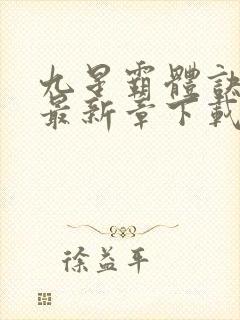 九星霸體訣
最新章下載
徐益平